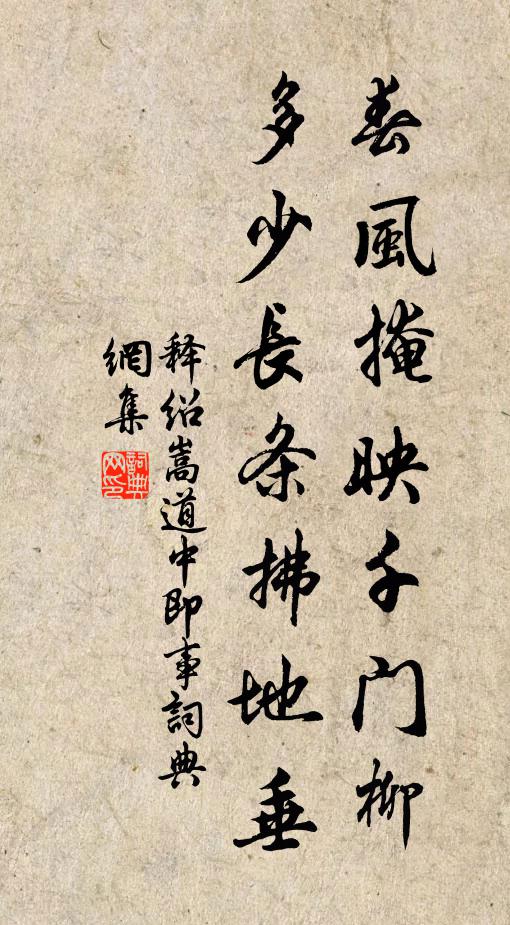 春風掩映千门柳
多少長条拂地垂
释绍嵩道中即事詞典
網集
詞典
网印